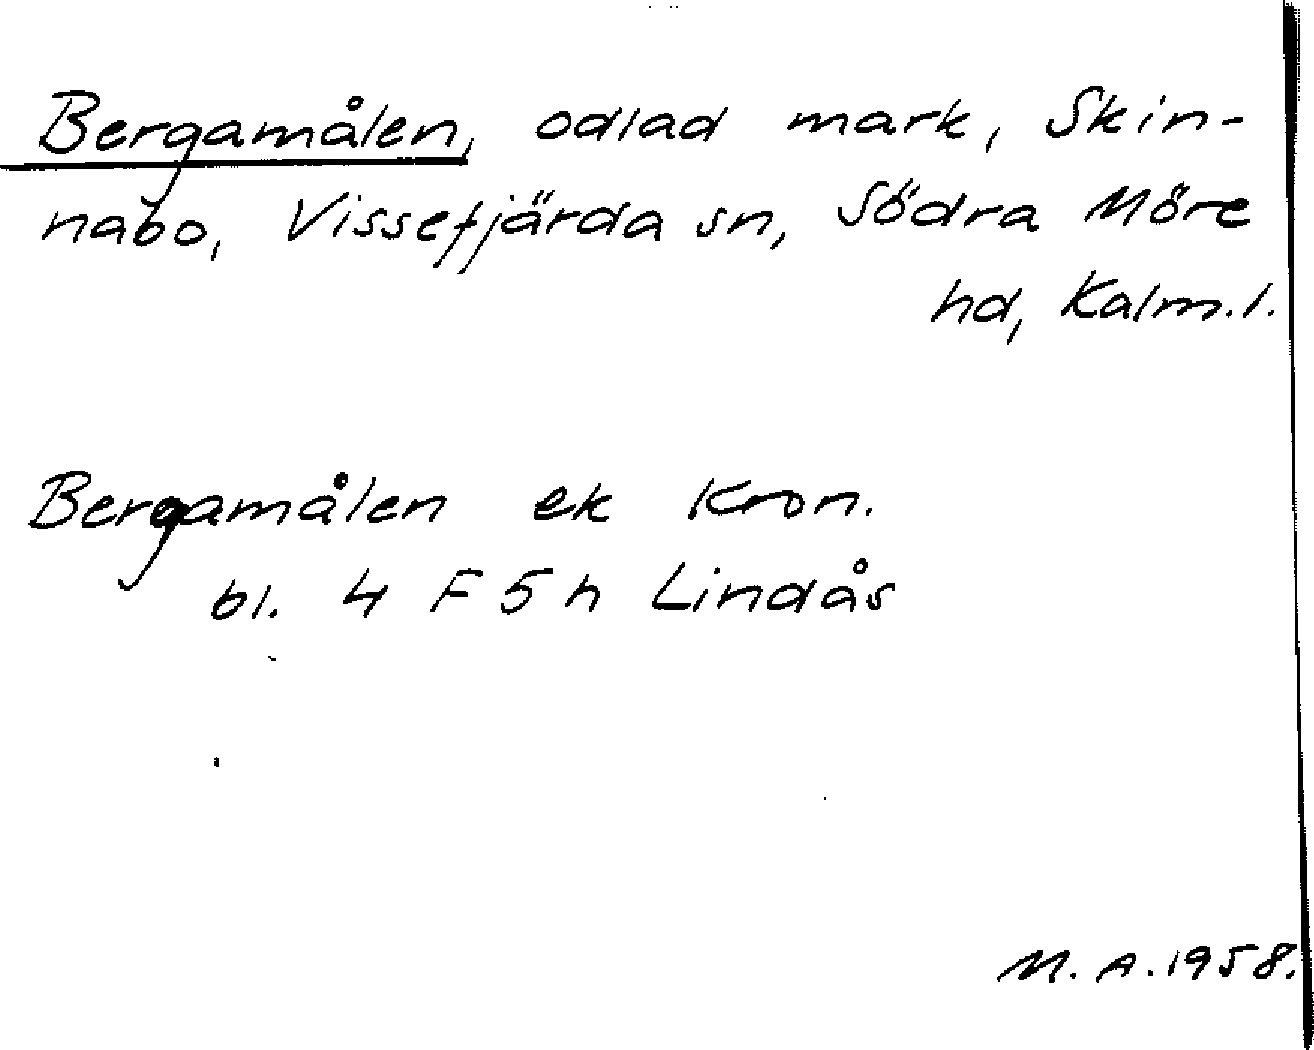 Bergamålen, odlad mark, Skin-
nabo, Vissefjärda sn, Södra Möre
hd, Kalm.l.
Bergamålen ek Kron.
bl. 4 F 5 h Lindås
M. A. 1958.